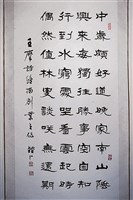 中歲頗好道晚家南山陲
興來每獨往勝事空自知
行到水窮處坐看雲起時
偶然值林叟談笑無還期
王摩詰詩終南別業